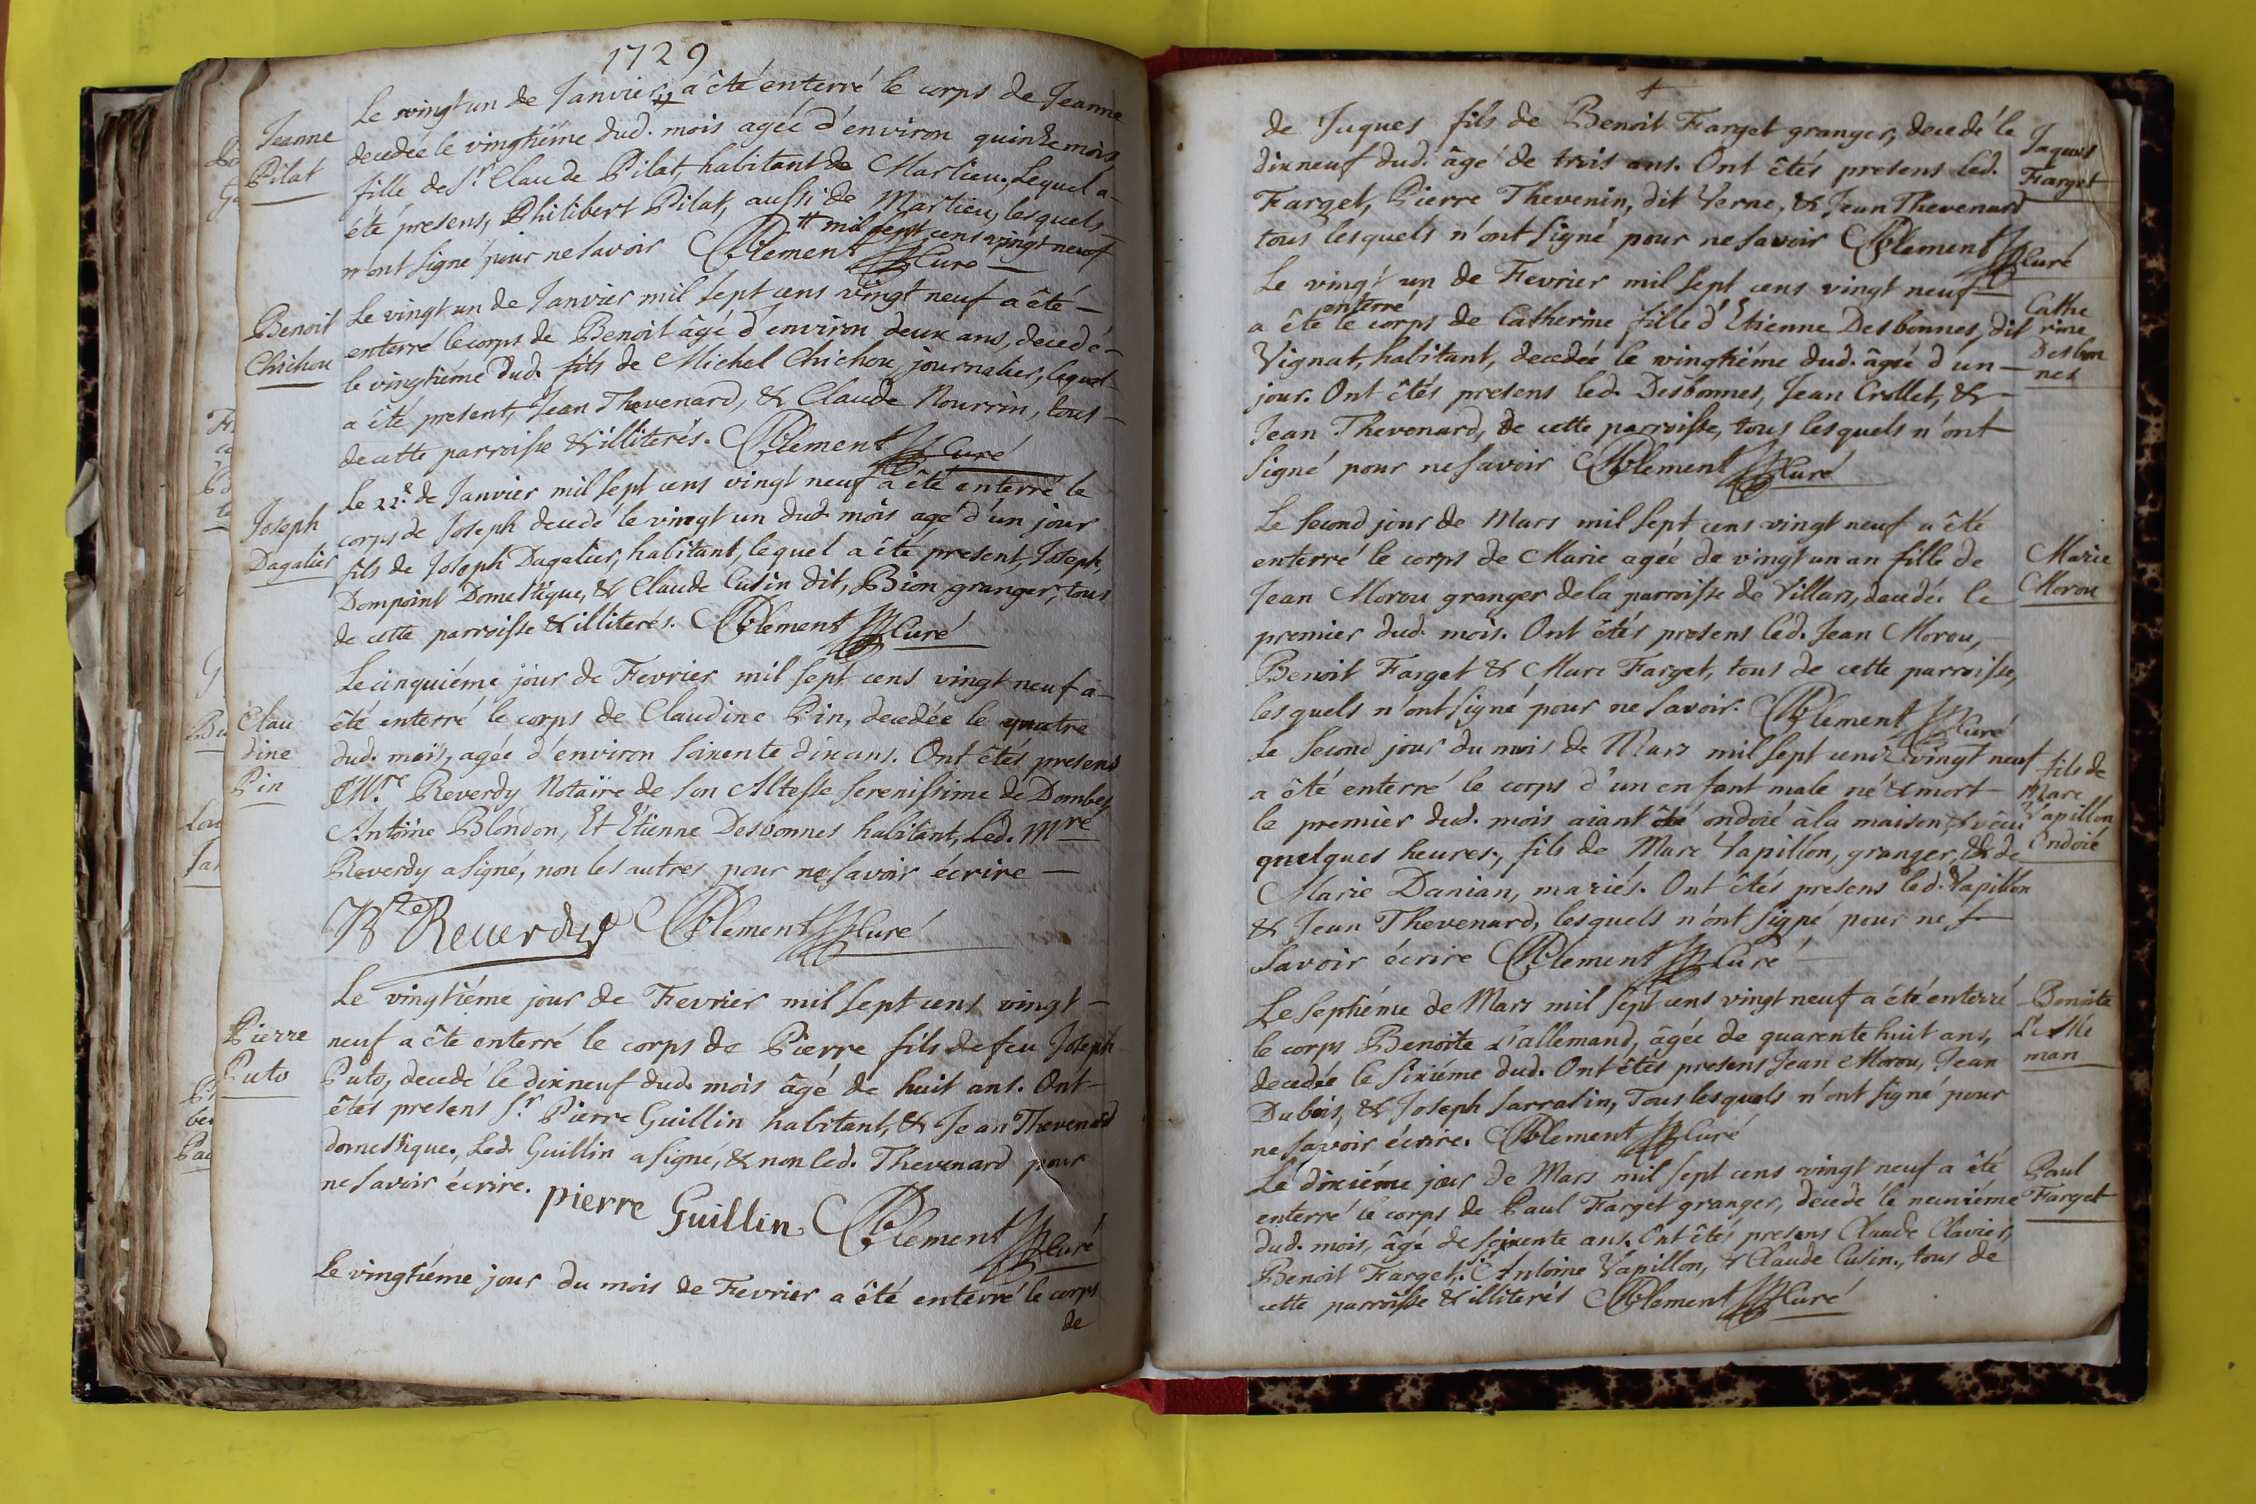 1729
Jeanne
Pilat
Le vingt un de Janvier # a êté enterré le corps de Jeanne
decedée le vingtiéme dud. mois agée d'environ quinze mois
fille de Sr. Claude Pilat, habitant de Marlieu, Lequel a-
été presens, Philibert Pilat, aussi de Marlieu, lesquels
# mil sept cens vingt neuf
n'ont signé pour ne savoir Clement Curé
Benoit
Chichou
Le vingt un de Janvier mil sept cens vingt neuf a êté -
enterré le corps de Benoit âgé d'environ deux ans, decedé -
le vingtiéme dud. fils de Michel Chichou, journalier, lequel
a été present, Jean Thevenard, & Claude Nourrin, tous -
de cette parroisse & illiterés. Clement Curé
Joseph
Dagalier
Le 22e. de Janvier mil sept cens vingt neuf a êté enterré le
corps de Joseph decedé le vingt un dud. mois agé d'un jour
fils de Joseph Dagalier, habitant, lequel a êté present, Joseph,
Dompoint Domestique, & Claude Cusin dit, Bion granger, tous
de cette parroisse & illiterés. Clement Curé
Clau
dine
Pin
Le cinquiéme jour de Fevrier mil sept cens vingt neuf a -
êté enterré le corps de Claudine Pin, decedée le quatre
dud. mois, agée d'environ soixente dix ans. Ont êtés presens
Mre. Reverdy Notaire de son Altesse serenissime de Dombes,
Antoine Blondon, Et Etienne Desbonnes habitant, Led. Mre
Reverdy a signé, non les autres pour ne savoir écrire -
Reuerdy Clement Curé
Pierre
Puto
Le vingtiéme jour de Fevrier mil sept cens vingt -
neuf a êté enterré le corps de Pierre fils de feu Joseph
Puto, decedé le dixneuf dud. mois âgé de huit ans. Ont -
êtés presens Sr. Pierre Guillin habitant, & Jean Thevenard
domestique., Led. Guillin a signé, & non led. Thevenard pour
ne savoir écrire. pierre Guillin Clement Curé
Le vingtiéme jour du mois de Fevrier a êté enterré le corps
de
de Jaques fils de Benoit Farget granger, decedé le
dixneuf dud. âgé de trois ans. Ont êtés presens led.
Farget, Pierre Thevenin, dit Verne, & Jean Thevenard
tous lesquels n'ont signé pour ne savoir Clement Curé
Jaques
Farget
Le vingt un de Fevrier mil sept cens vingt neuf -
enterré
a êté le corps de Catherine fille d'Etienne Desbonnes, dit
Vignat, habitant, decedée le vingtiéme dud. âgée d'un -
jour. Ont êtés presens led. Desbonnes, Jean Crollet, & -
Jean Thevenard, de cette parroisse, tous lesquels n'ont
signé pour ne savoir Clement Curé
Cathe
rine
Desbon
nes
Le second jour de Mars mil sept cens vingt neuf a êté
enterré le corps de Marie agée de vingt un an fille de
Jean Morou granger de la parroisse de Villars, decedée le
premier dud. mois. Ont êtés presens led. Jean Morou,
Benoit Farget & Marc Farget, tous de cette parroisse,
lesquels n'ont signé pour ne savoir. Clement Curé
Marie
Morou
Le second jour du mois de Mars mil sept cens vingt neuf
a êté enterré le corps d'un enfant male né & mort
le premier dud. mois aiant êté ondoié à la maison & vêcu
quelques heures, fils de Marc Vapillon, granger, & de
Marie Danian, mariés. Ont êtés presens led. Vapillon
& Jean Thevenard, lesquels n'ont signé pour ne
savoir écrire Clement Curé
fils de
Marc
Vapillon
Ondoié
Le septiéme de Mars mil sept cens vingt neuf a été enterré
le corps Benoite Lallemand, âgée de quarente huit ans,
decedée le sixiéme dud. Ont êtés presens Jean Morou, Jean
Dubois, & Joseph Sarrasin, Tous lesquels n'ont signé pour
ne savoir écrire. Clement Curé
Benoite
L'Alle
man
Le dixiéme jour de Mars mil sept cens vingt neuf a êté
enterré le corps de Paul Farget granger, decedé le neuviéme
dud. mois, âgé de soixente ans. Ont êtés presens Claude Clavier,
Benoit Farget, Antoine Vapillon, & Claude Cusin., tous de
cette parroisse & illiterés Clement Curé
Paul
Farget